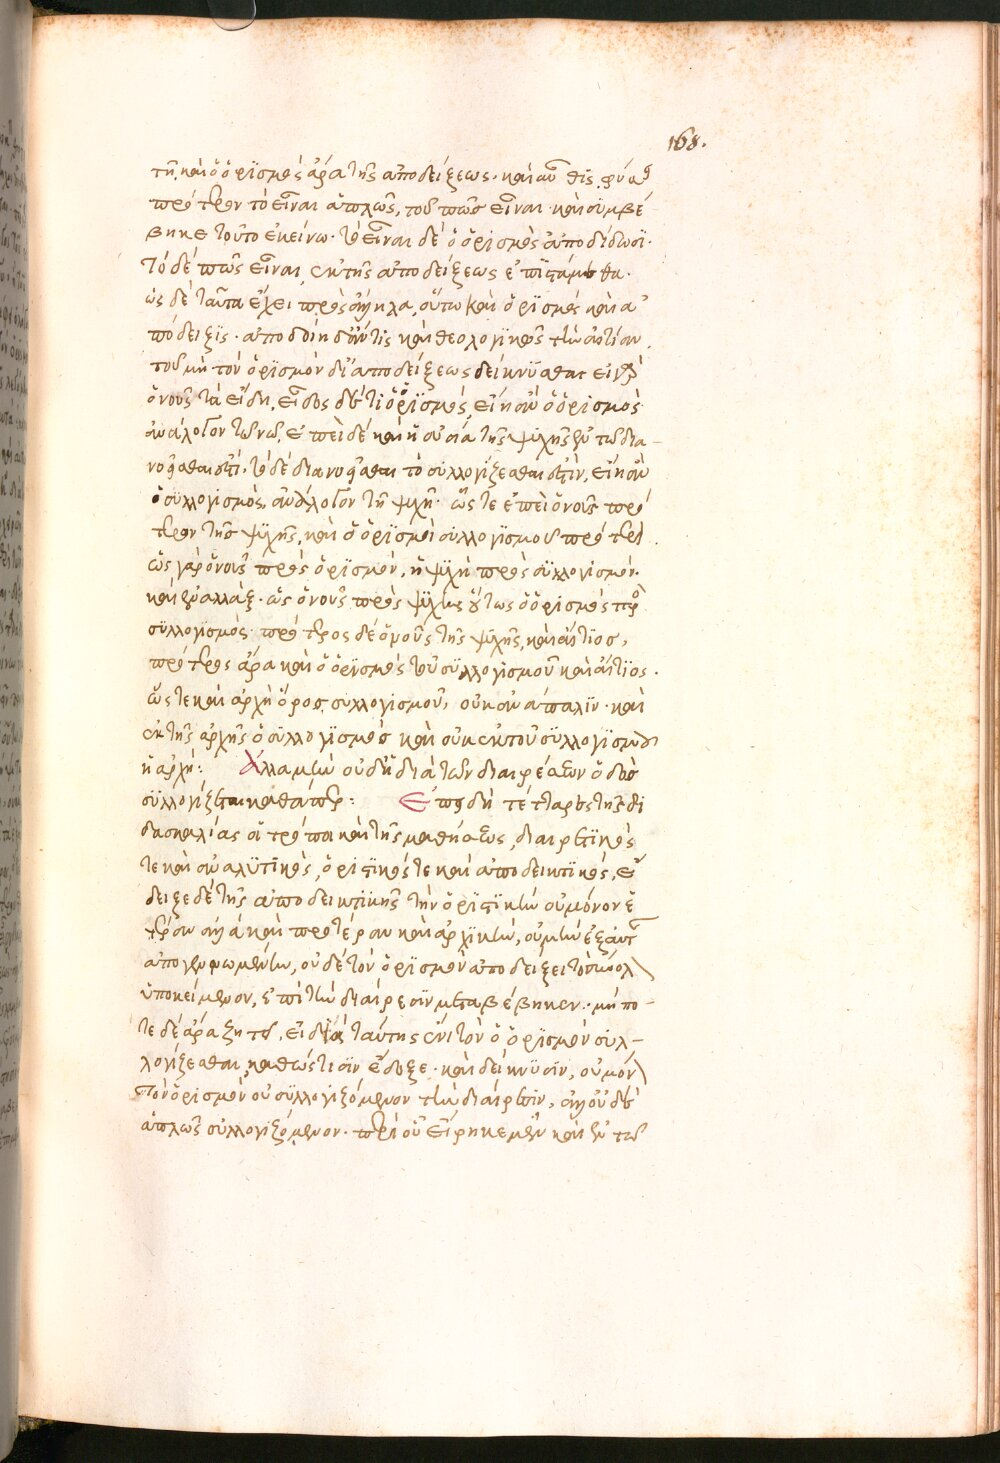 168.
τῇ. καὶ ὁ ὁρϊσμὸς ἄρα τῆς ἀποδείξεως. καὶ αὖθϊς. φύσει
πρότερον τὸ εἶναι ἁπλῶς, τοῦ πῶς εἶναι. καὶ συμβέ
βηκε τοῦτο ἐκείνω. τὸ εἶναι δὲ ὁ ὁρισμὸς ἀποδίδωσϊ.
τὸ δὲ πῶς εἶναι, ἐκ τῆς ἀποδείξεως ἐπϊστάμεθα.
ὡς δὲ ταῦτα ἔχει πρὸς ἄλληλα, οὕτω καὶ ὁρϊσμὸς καὶ ἀ
πόδειξϊς. ἀποδοίη δ' ἄν τϊς καὶ θεολογϊκῶς τὴν αἰτίαν,
τοῦ μὴ τὸν ὁρϊσμὸν δι' ἀποδείξεως δείκνϋσθαι εἰ γὰρ
ὁ νοῦς τὰ εἴδη, εἶδος δέ τι ὁ ὁρϊσμός, εἴη ἂν ὁ ὁρισμὸς
ἀνάλογον τῶ νῶ, ἐπεὶ δὲ καὶ ἡ οὐσία τῆς ψϋχῆς ἐν τῶ δια-
νοεῖσθαι ἐστί. τὸ δὲ διανοεῖσθαι τὸ συλλογίζεσθαι ἐστὶν, εἴη ἂν
ὁ συλλογισμὸς, ἀνάλογον τῇ ψυχῇ. ὥστε ἐπεὶ ὁ νοῦς πρό
τερον τῆς ψϋχῆς, καὶ ὁ ὁρϊσμὸς συλλογϊσμοῦ πρότερος.
ὡς γὰρ ὁ νοῦς πρὸς ὁρισμὸν, ἡ ψϋχὴ πρὸς συλλογϊσμόν.
καὶ ἐναλλὰξ. ὡς ὁ νοῦς πρὸς ψϋχὴν οὕτως ὁ ὁρισμὸς πρὸς
συλλογϊσμὸς. πρότερος δὲ ὁ νοῦς τῆς ψϋχῆς, καὶ αἴτϊος,
πρότερος ἄρα καὶ ὁ ὁρϊσμὸς τοῦ συλλογϊσμοῦ καὶ αἴτϊος.
ὥστε καὶ ἀρχὴ ὁ ὅρος συλλογϊσμοῦ, οὐκ ἀνάπαλϊν. καὶ
ἐκ τῆς ἀρχῆς ὁ συλλογϊσμὸς καὶ οὐκ ἐκ τοῦ συλλογϊσμοῦ
ἡ ἀρχή: Ἀλλὰ μὴν οὐδ' ἡ διὰ τῶν διαιρέσεων ὁδὸς
συλλογίζεται καθάπερ: Ἐπειδὴ τέτταρες τῆς δϊ
δασκαλίας οἱ τρόποι καὶ τῆς μαθήσεως, διαιρετϊκός
τε καὶ ἀναλϋτϊκὸς, ὁρϊστϊκός τε καὶ ἀποδεικτϊκός, ἔ
δειξε δὲ τῆς ἀποδεικτϊκῆς τὴν ὁρϊστϊκὴν οὐ μόνον ἑ
τέραν ἀλλὰ καὶ προτέραν καὶ ἀρχϊκὴν, οὐ μὴν ἐξ αὐτῆς
ἀπογεννωμένην, οὐδὲ τὸν ὁρϊσμὸν ἀποδείξει τὸ παράπαν
ὑποκείμενον, ἐπὶ τὴν διαίρεσϊν μεταβέβηκεν. μήπο-
τε δὲ ἄρα ζητῶν, εἰ διὰ ταύτης ἔνι τὸν ὁρϊσμὸν συλ-
λογίζεσθαι, καθώς τισϊν ἔδοξε. καὶ δείκνυσϊν, οὐ μόνον
τὸν ὁρισμὸν οὐ συλλογϊζόμενον τὴν διαίρεσϊν, ἀλλ' οὐδὲ
ἁπλῶς συλλογιζόμενον. περὶ οὗ εἴρηκε μὲν καὶ ἐν τῶ